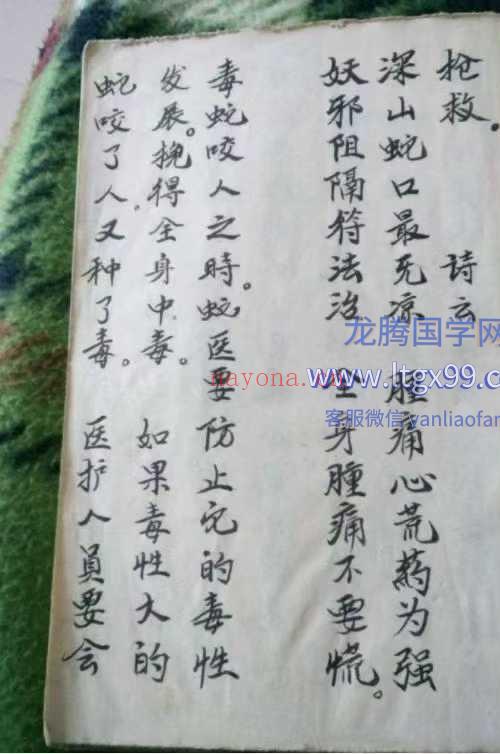 抢救。　诗云
深山蛇口最无凉　腫痛心荒药为强
妖邪阻隔符法治　全身腫痛不要慌。
毒蛇咬人之時。蛇医要防止它的毒性
发展。挽得全身中毒。　如果毒性大的
蛇咬了人，又种了毒。　医护人員要会
龙腾国学网
www.ltgx99.c
nayona.
客服微信 yanliaofan